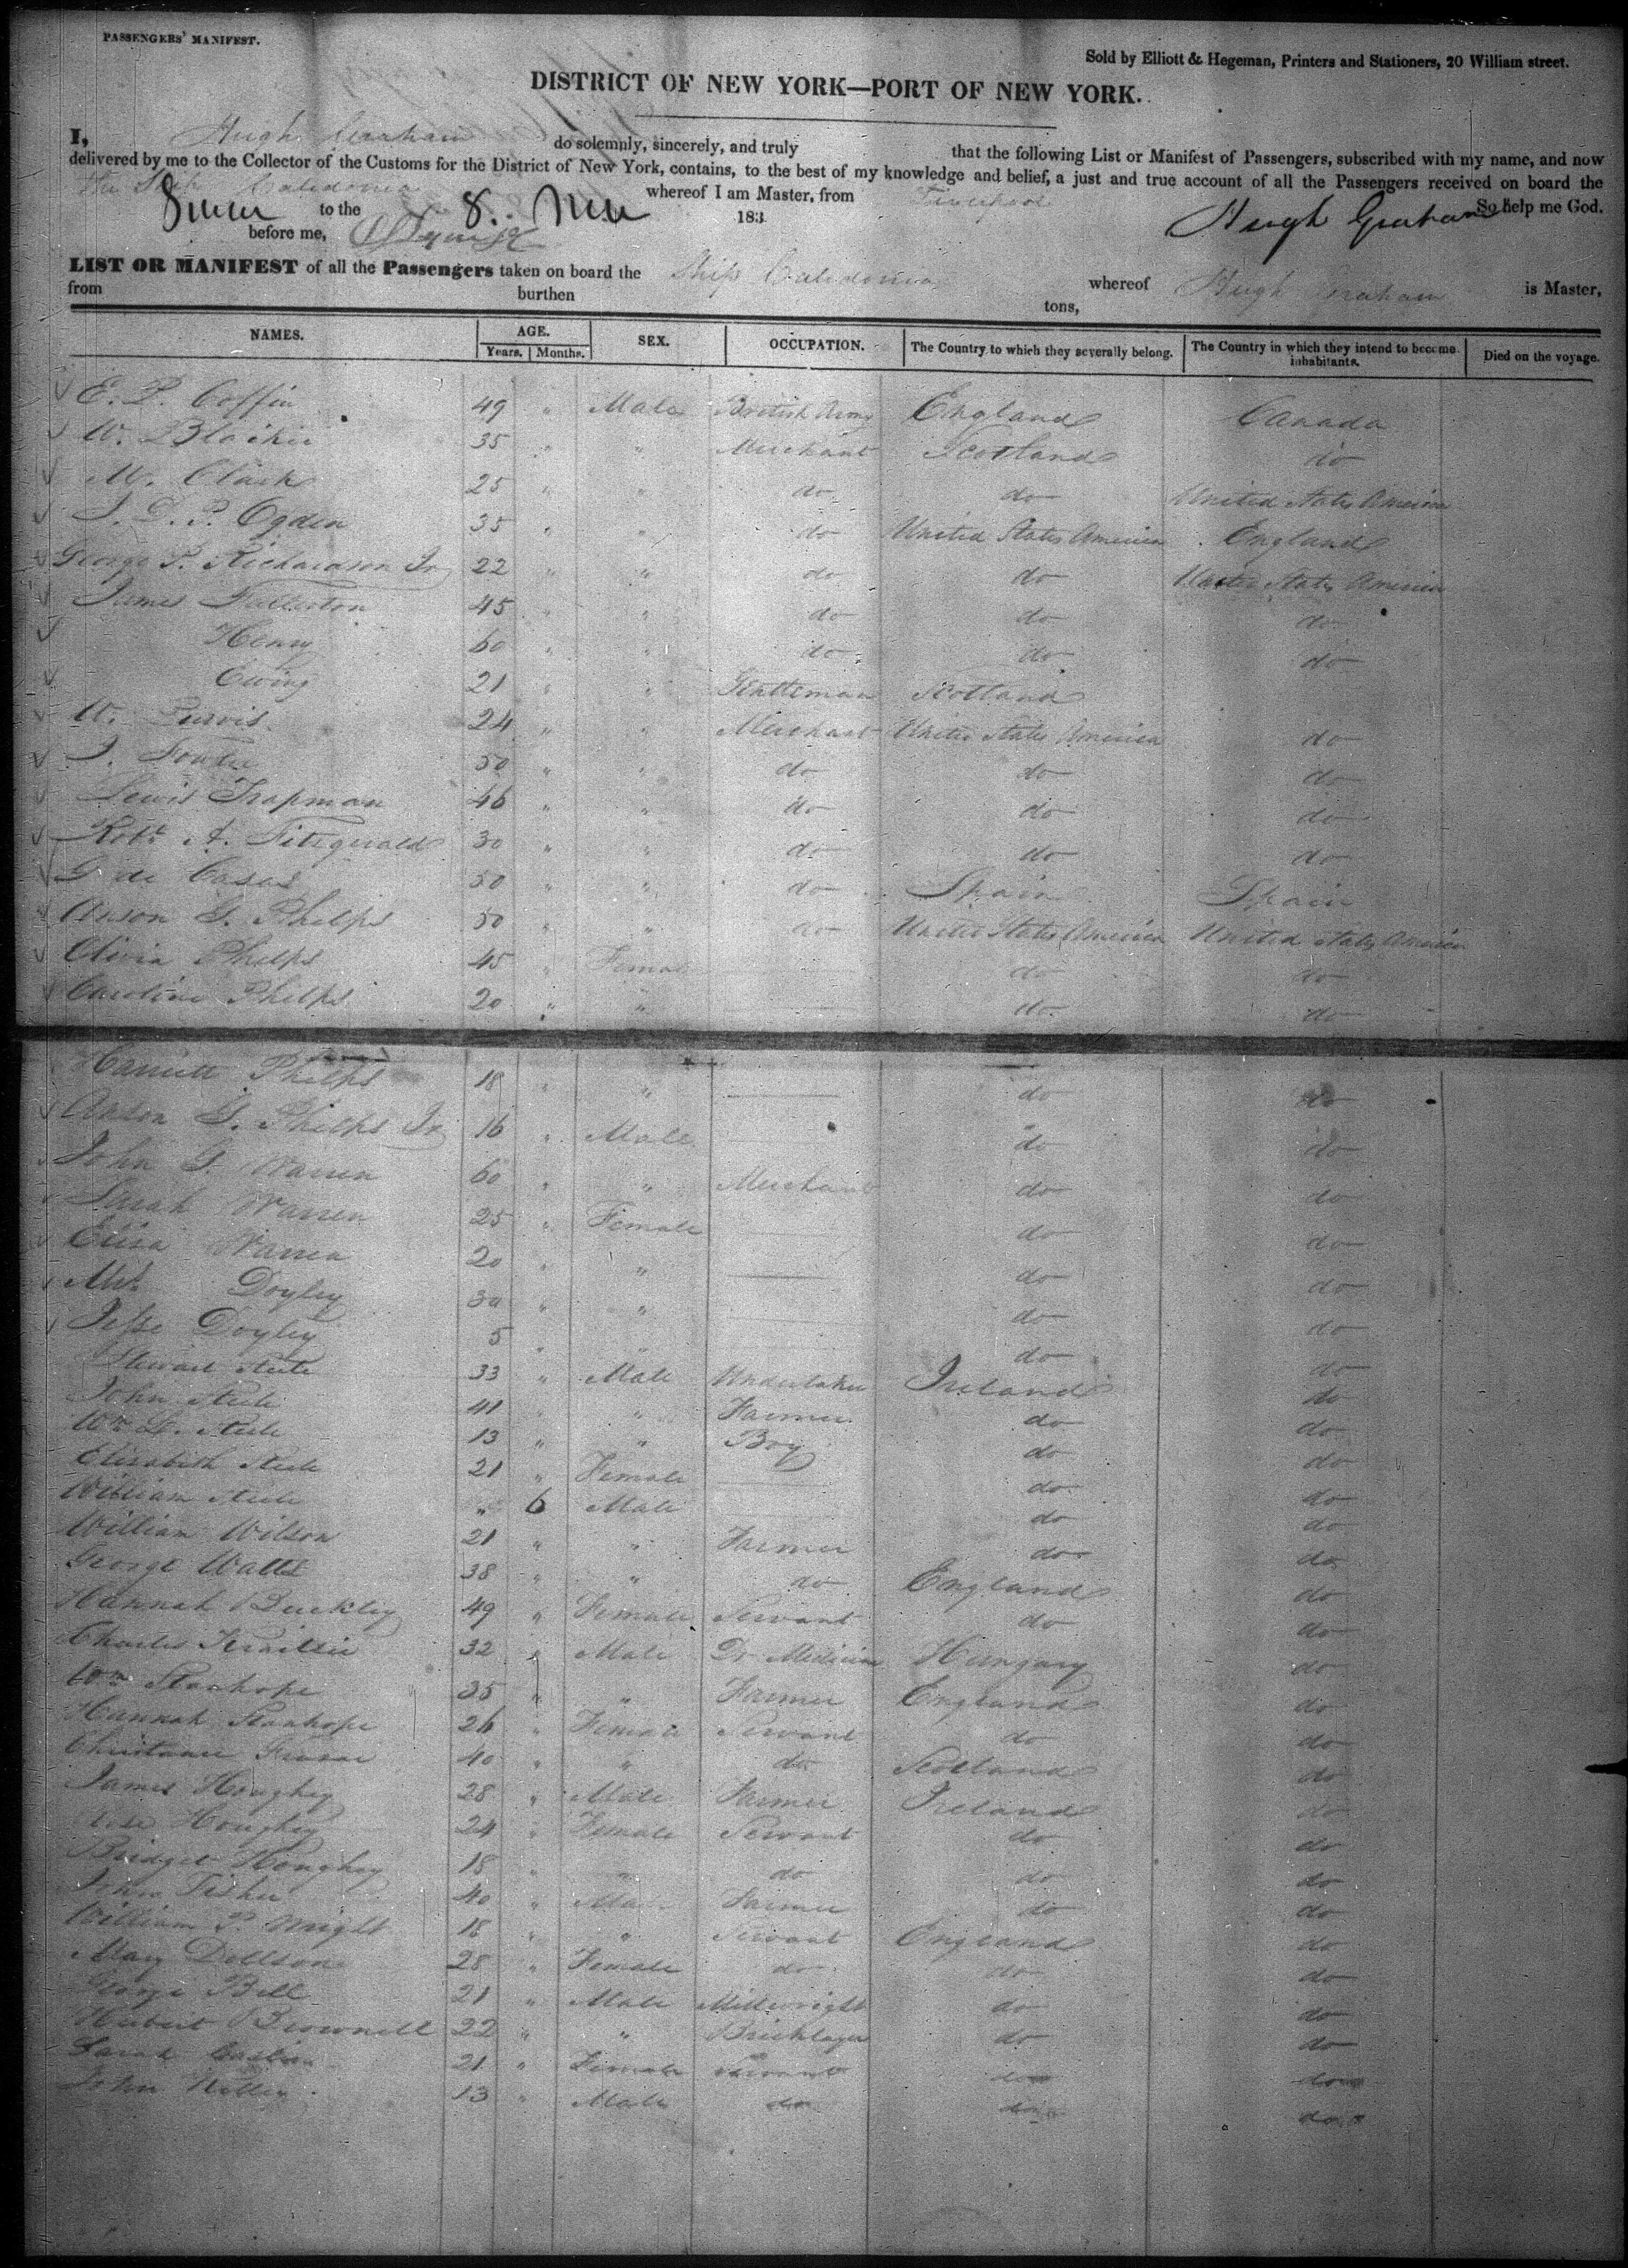 PASSENGERS' MANIFEST.
Sold by Elliott & Hegeman, Printers and Stationers, 20 William street.
DISTRICT OF NEW YORK—PORT OF NEW YORK.
I, Hugh Graham do solemnly, sincerely, and truly that the following List or Manifest of Passengers, subscribed with my name, and now
delivered by me to the Collector of the Customs for the District of New York, contains, to the best of my knowledge and belief, a just and true account of all the Passengers received on board the
the Ship Caledonia whereof I am Master, from Liverpool
to the 8. 183 So help me God.
before me, Hugh Graham
LIST OR MANIFEST of all the Passengers taken on board the Ship Caledonia whereof Hugh Graham is Master,
from burthen tons,
NAMES. AGE. SEX. OCCUPATION. The Country to which they severally belong. The Country in which they intend to become inhabitants. Died on the voyage.
Years. Months.
E. P. Coffin 49 " Male British Army England Canada
W. Blackie 35 " " Merchant Scotland do
M. Clark 25 " " do do United States America
J. D. P. Ogden 35 " " do United States America England
George P. Richardson Jr 22 " " do do United States America
James Fullerton 45 " " do do do
Henry 60 " " do do do
Ewing 21 " " Gentleman Scotland
W. Purvis 24 " " Merchant United States America do
J. 50 " " do do do
Lewis Trapman 46 " " do do do
Robt A. Fitzgerald 30 " " do do do
G de Casas 50 " " do Spain Spain
Anson G. Phelps 50 " " do United States America United States America
Olivia Phelps 45 " Female do do
Caroline Phelps 20 " " do do
Harriett Phelps 18 " " do do
Anson G. Phelps Jr 16 " Male do do
John G. Warren 60 " " Merchant do do
Sarah Warren 25 " Female do do
Eliza Warren 20 " " do do
Mrs Doyley 30 " " do do
Jesse Doyley 5 " " do do
Stewart Steele 33 " Male Undertaker Ireland do
John Steele 41 " " Farmer do do
Wm Steele 13 " " Boy do do
Elizabeth Steele 21 " Female do do
William Steele " 6 Male do do
William Wilson 21 " " Farmer do do
George Watts 38 " " do England do
Hannah Buckley 49 " Female Servant do do
Charles 32 " Male Dr Medicine Hungary do
Wm Stanhope 35 " " Farmer England do
Hannah Stanhope 26 " Female Servant do do
Fraser 40 " " do Scotland do
James Houghey 28 " Male Farmer Ireland do
Houghey 24 " Female Servant do do
Bridget Houghey 18 " " do do do
John Fisher 40 " Male Farmer do do
William P. Wright 18 " " Servant England do
Mary Dollson 28 " Female do do do
George Bell 21 " Male Millwright do do
Herbert Brownell 22 " " Bricklayer do do
Sarah 21 " Female Servant do do
John 13 " Male do do do